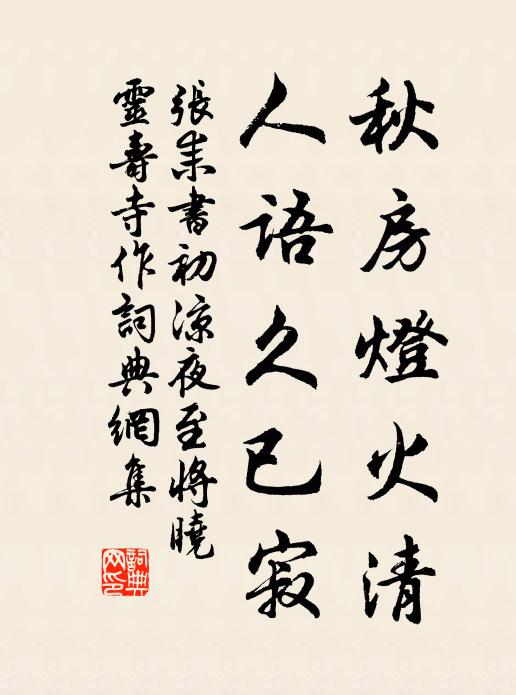 秋房燈火清
人語久已寂
張耒書初涼夜至將曉
靈壽寺作詞典網集
詞典
网印